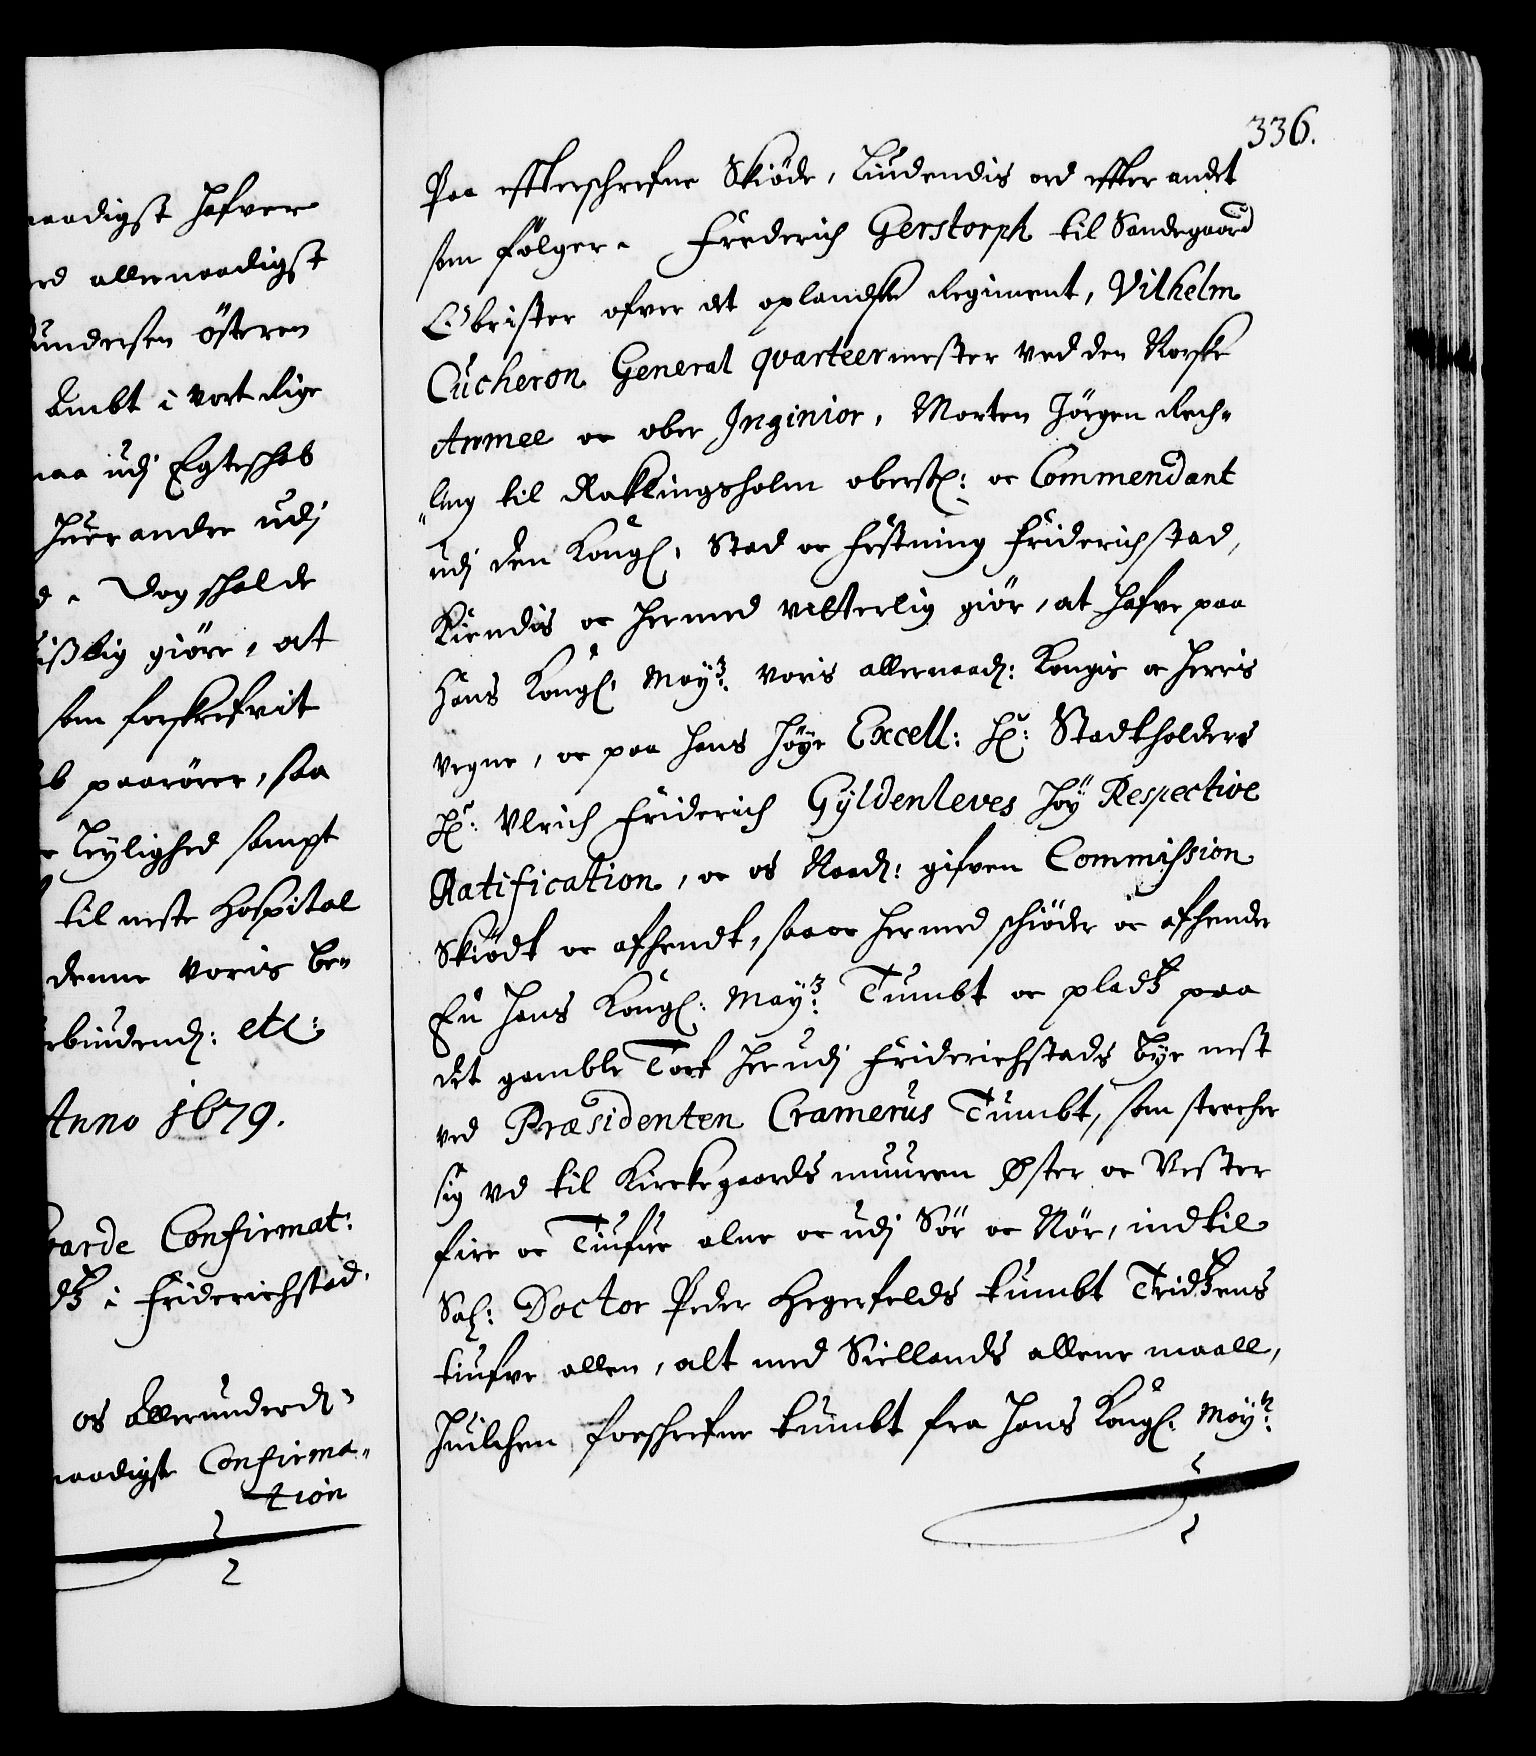 naadigst hafver
ed allernaadigst
undersen östersen
Ambt i vort Rige
maa udj Egteschab
huer andre udj
d. Dog skal de
visslig giöre, at
som forskrefvit
b paarörer, saa
Leylighed sampt
til neste Hospital
denne voris be-
rbindend: etc:
Anno 1679.
aarde Confirmat:
dtz i Friderichstad.
os Allerunderd:
naadigste Confirma-
tion
336.
Paa effterschrefne Skiöde, Liudendis ord effter andet
som fölger. Frederich Gerstorph til Sandegaard
Obrister ofver det oplandske Regiment, Vilhelm
Cucheron General quarteermester ved den Norske
Armee oc ober Inginior, Morten Jörgen Rech-
ling til Raklingsholm oberst: oc Commendant
udj den Kongl. Stad oc Festning Friderichstad,
Kiendis oc hermed vitterlig giör, at hafve paa
Hans Kongl. May:tz voris allernaad: Kongis oc Herris
vegne, oc paa hans höye Excell: Hr: Stadtholders
Hr: Vlrich Friderich Gyldenleves höy Respective
Ratification, oc os Naad: gifven Commission
Skiödt oc afhendt, saa oc hermed schiöder oc afhender
En hans Kongl: May:tz Tumbt oc pladtz paa
det gamble Torf her udj Friderichstads bye nest
ved Præsidenten Cramerus Tumbt, som strecher
sig ud til Kirckegaards muuren Øster oc Vester
fire oc Tiufue alne oc udj Sör oc Nör, indtil
Sal: Doctor Peder Hegerfelds tumbt Tridtzens
tiufve allen, alt med Siellands allene maall,
huilchen forschrefne tumbt fra hans Kongl. May:tz